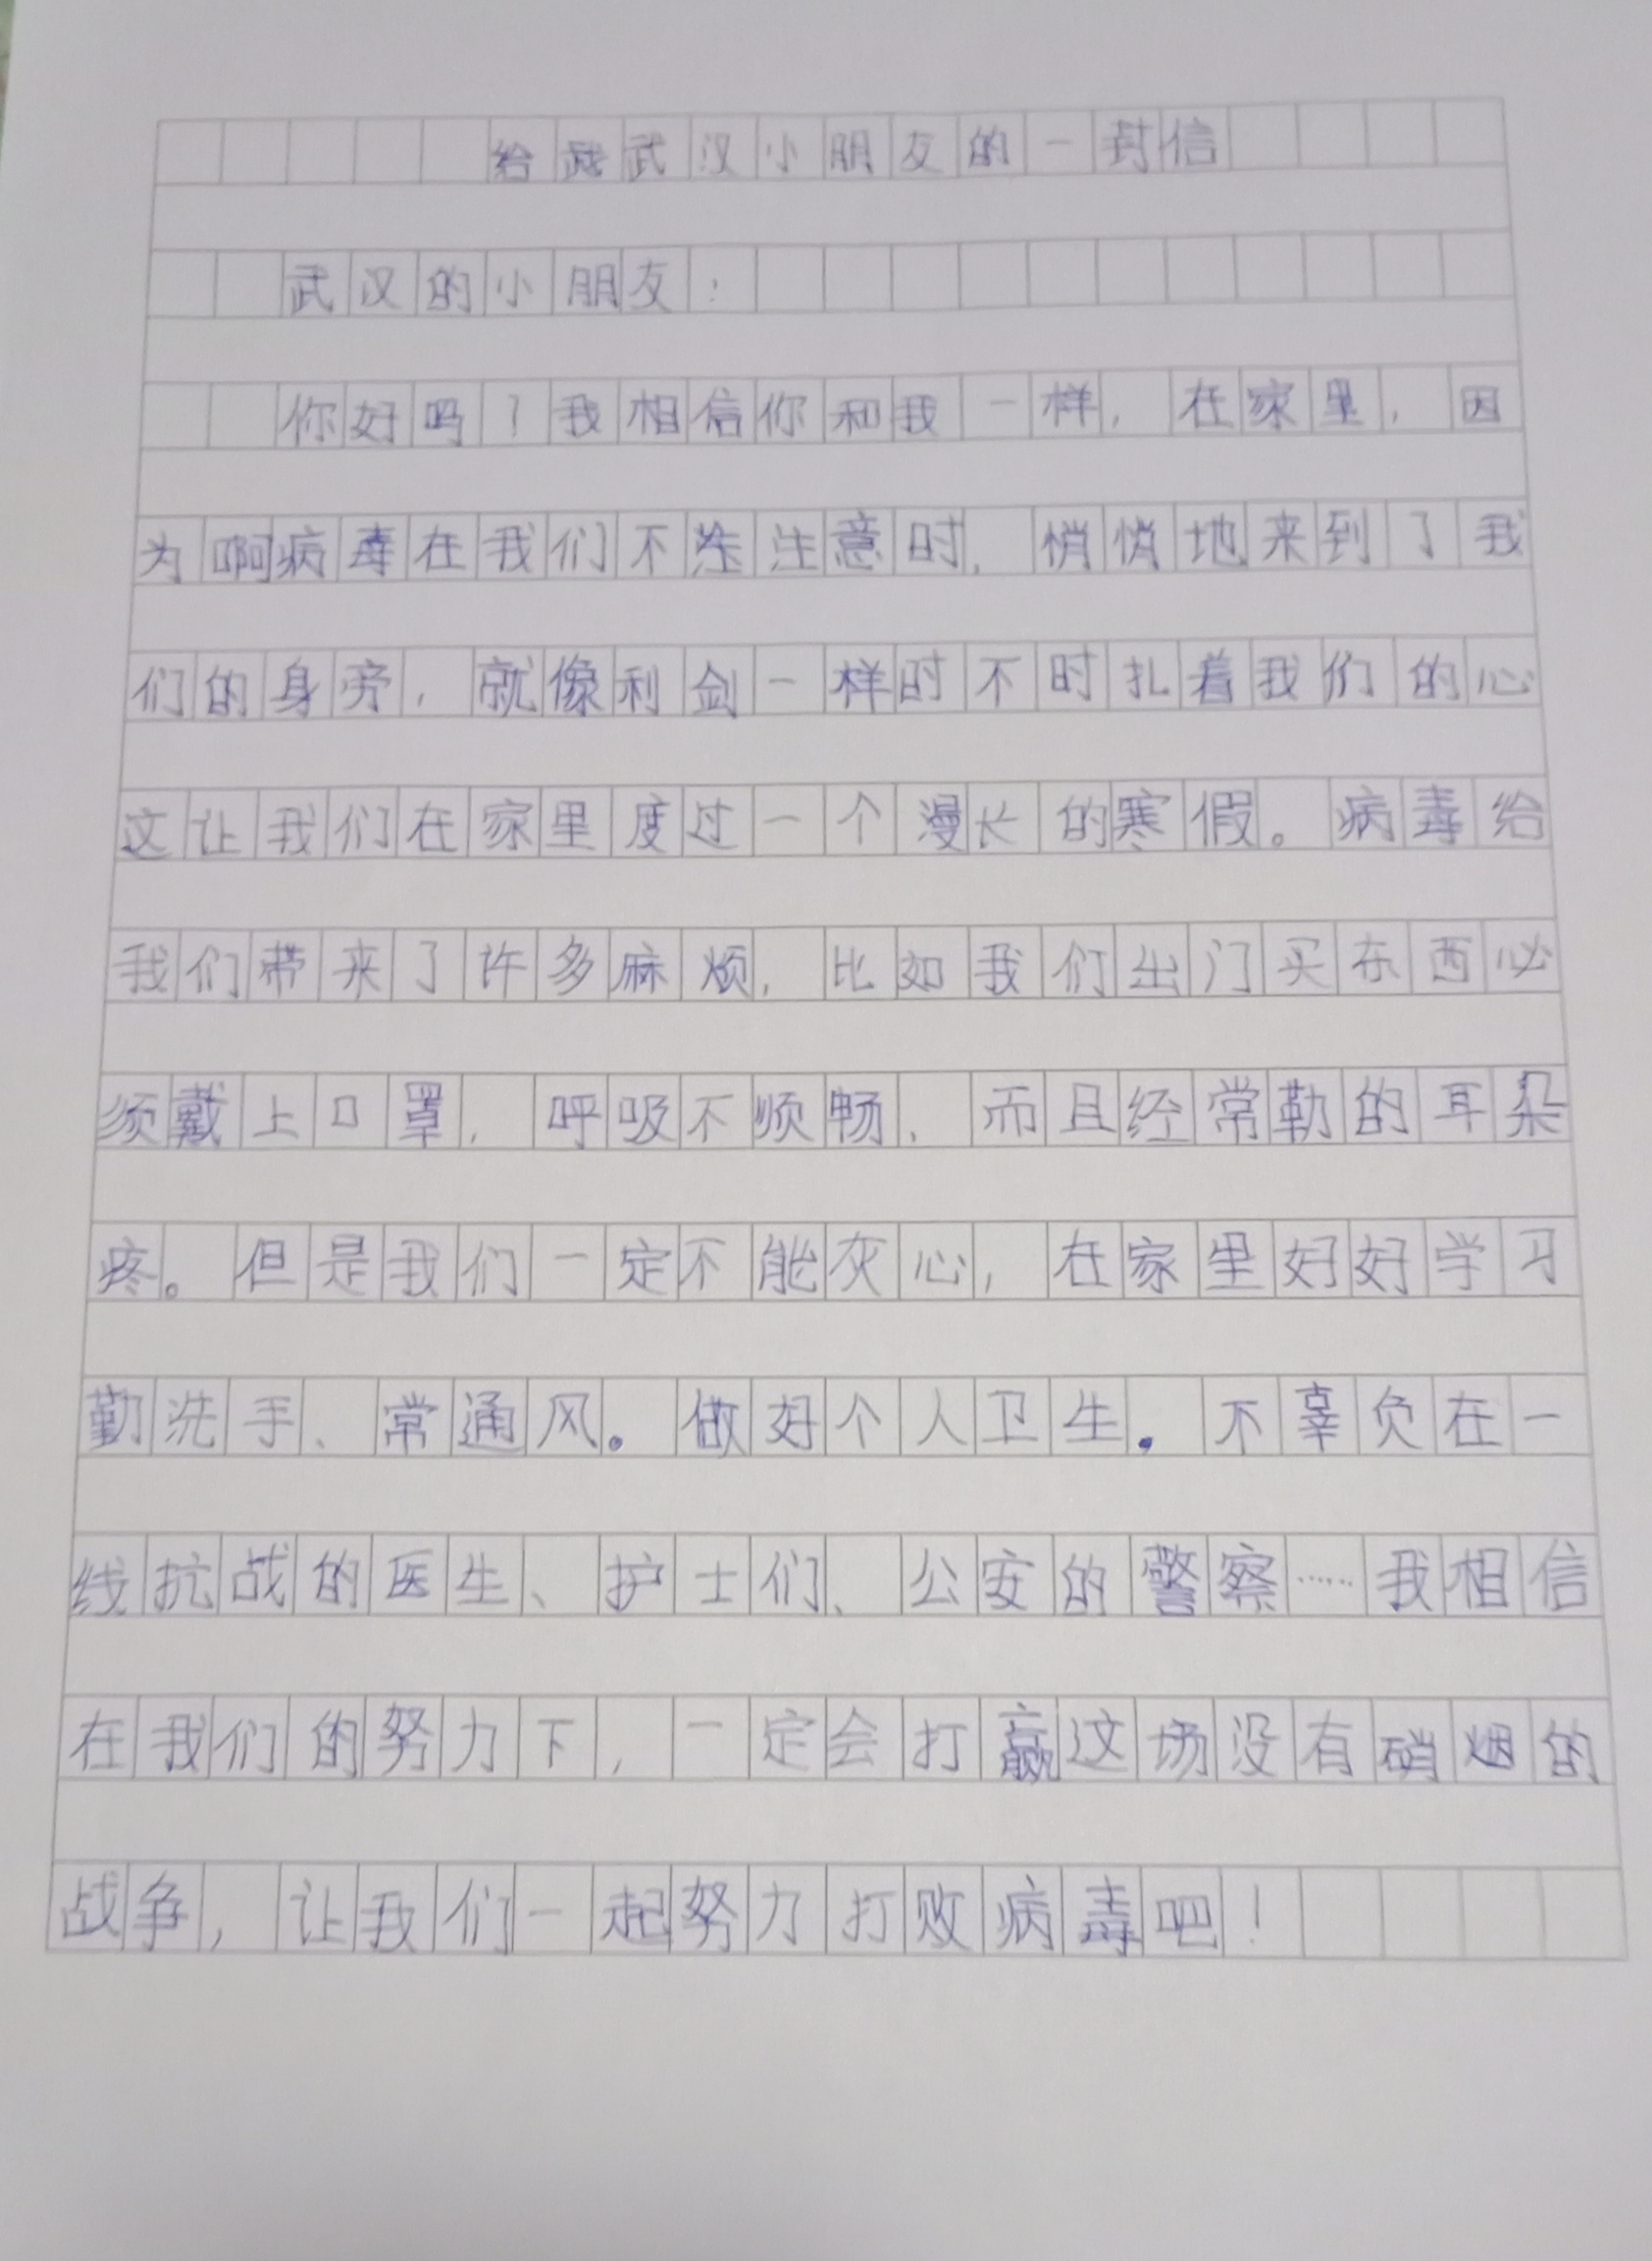 给武汉小朋友的一封信
武汉的小朋友：
你好吗？我相信你和我一样，在家里，因
为啊病毒在我们不注意时，悄悄地来到了我
们的身旁，就像利剑一样时不时扎着我们的心
这让我们在家里度过一个漫长的寒假。病毒给
我们带来了许多麻烦，比如我们出门买东西必
须戴上口罩，呼吸不顺畅，而且经常勒的耳朵
疼。但是我们一定不能灰心，在家里好好学习
勤洗手、常通风。做好个人卫生。不辜负在一
线抗战的医生、护士们、公安的警察……我相信
在我们的努力下，一定会打赢这场没有硝烟的
战争，让我们一起努力打败病毒吧！